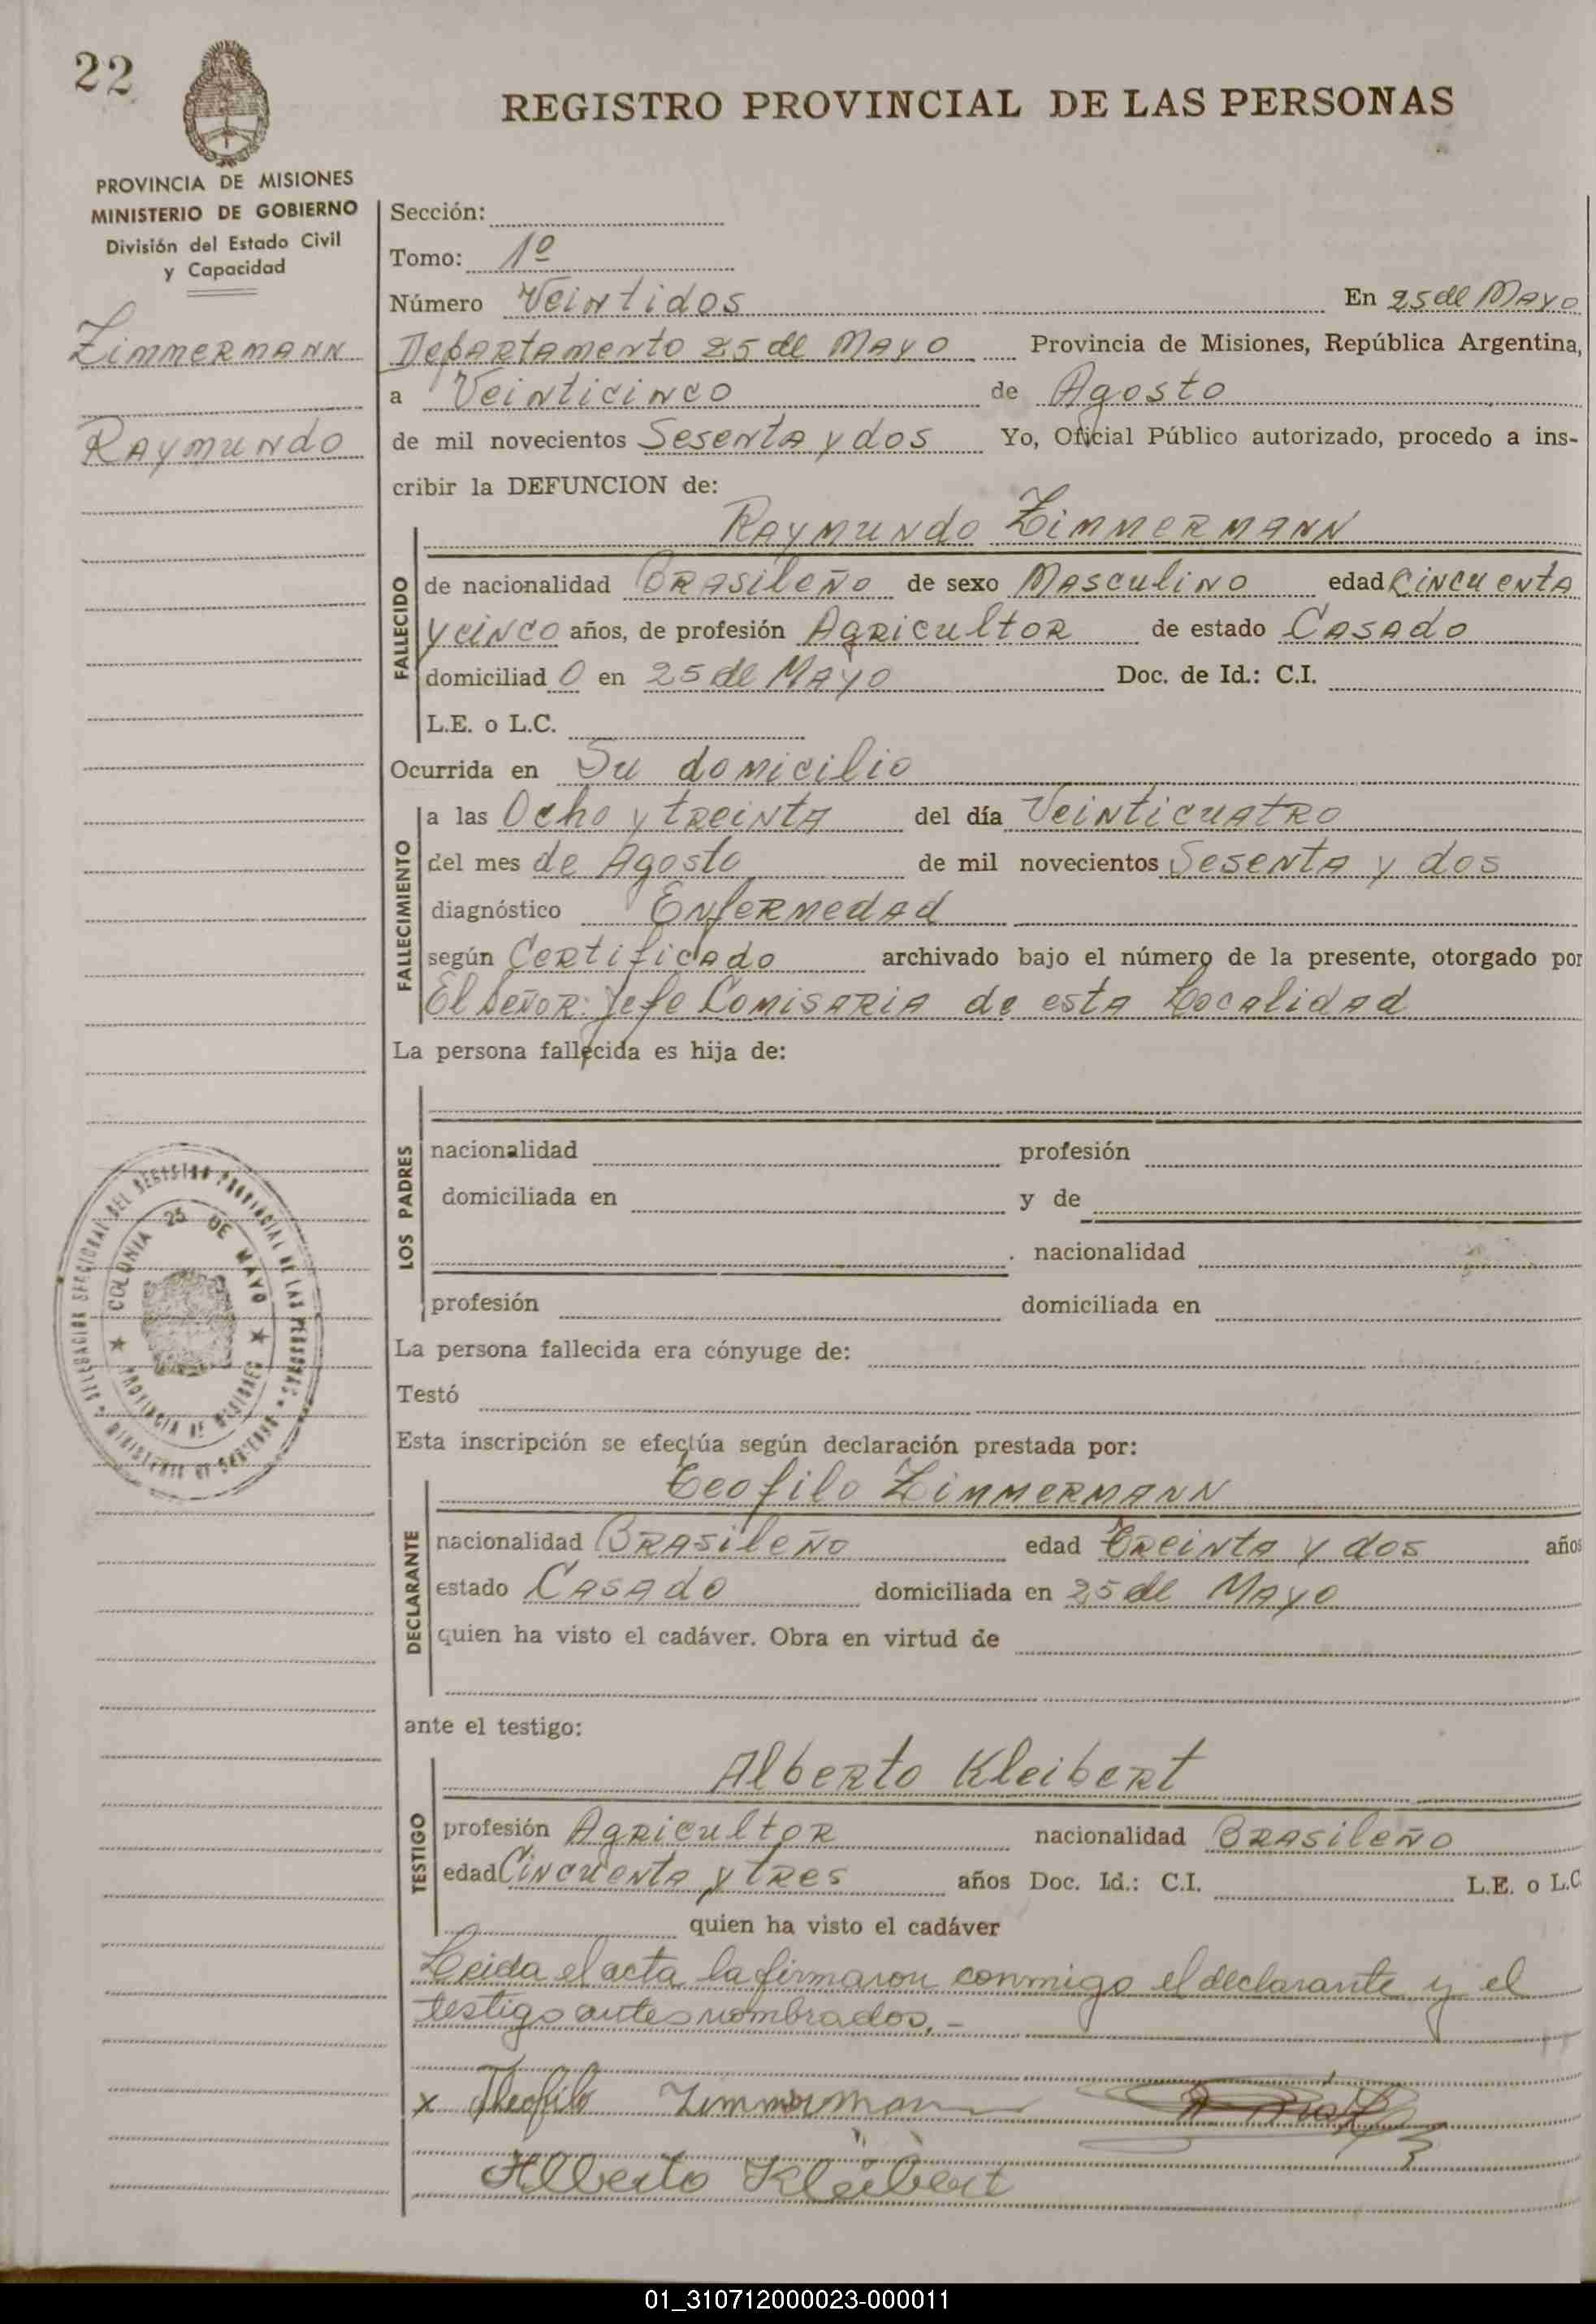 22
REGISTRO PROVINCIAL DE LAS PERSONAS
PROVINCIA DE MISIONES
MINISTERIO DE GOBIERNO
División del Estado Civil
y Capacidad
Zimmermann
Raymundo
Sección:
Tomo: 1º
Número Veintidos En 25 de Mayo
Departamento 25 de Mayo Provincia de Misiones, República Argentina,
a Veinticinco de Agosto
de mil novecientos Sesenta y dos Yo, Oficial Público autorizado, procedo a ins-
cribir la DEFUNCION de:
Raymundo Zimmermann
FALLECIDO
de nacionalidad Brasileño de sexo Masculino edad Cincuenta
y cinco años, de profesión Agricultor de estado Casado
domiciliad o en 25 de Mayo Doc. de Id.: C.I.
L.E. o L.C.
Ocurrida en Su domicilio
FALLECIMIENTO
a las Ocho y treinta del día Veinticuatro
del mes de Agosto de mil novecientos Sesenta y dos
diagnóstico Enfermedad
según Certificado archivado bajo el número de la presente, otorgado por
El Señor: Jefe Comisaria de esta Localidad
La persona fallecida es hija de:
LOS PADRES
nacionalidad profesión
domiciliada en y de
. nacionalidad
profesión domiciliada en
La persona fallecida era cónyuge de:
Testó
Esta inscripción se efectúa según declaración prestada por:
Teofilo Zimmermann
DECLARANTE
nacionalidad Brasileño edad Treinta y dos años
estado Casado domiciliada en 25 de Mayo
quien ha visto el cadáver. Obra en virtud de
ante el testigo:
Alberto Kleibert
TESTIGO
profesión Agricultor nacionalidad Brasileño
edad Cincuenta y tres años Doc. Id.: C.I. L.E. o L.C
quien ha visto el cadáver
Leida el acta la firmaron conmigo el declarante y el
testigo antes nombrados.-
x Theofilo Zimmermann
Alberto Kleibert
DELEGACION SECCIONAL DEL REGISTRO PROVINCIAL DE LAS PERSONAS
MINISTERIO DE GOBIERNO
COLONIA 25 DE MAYO
PROVINCIA DE MISIONES
01_310712000023-000011